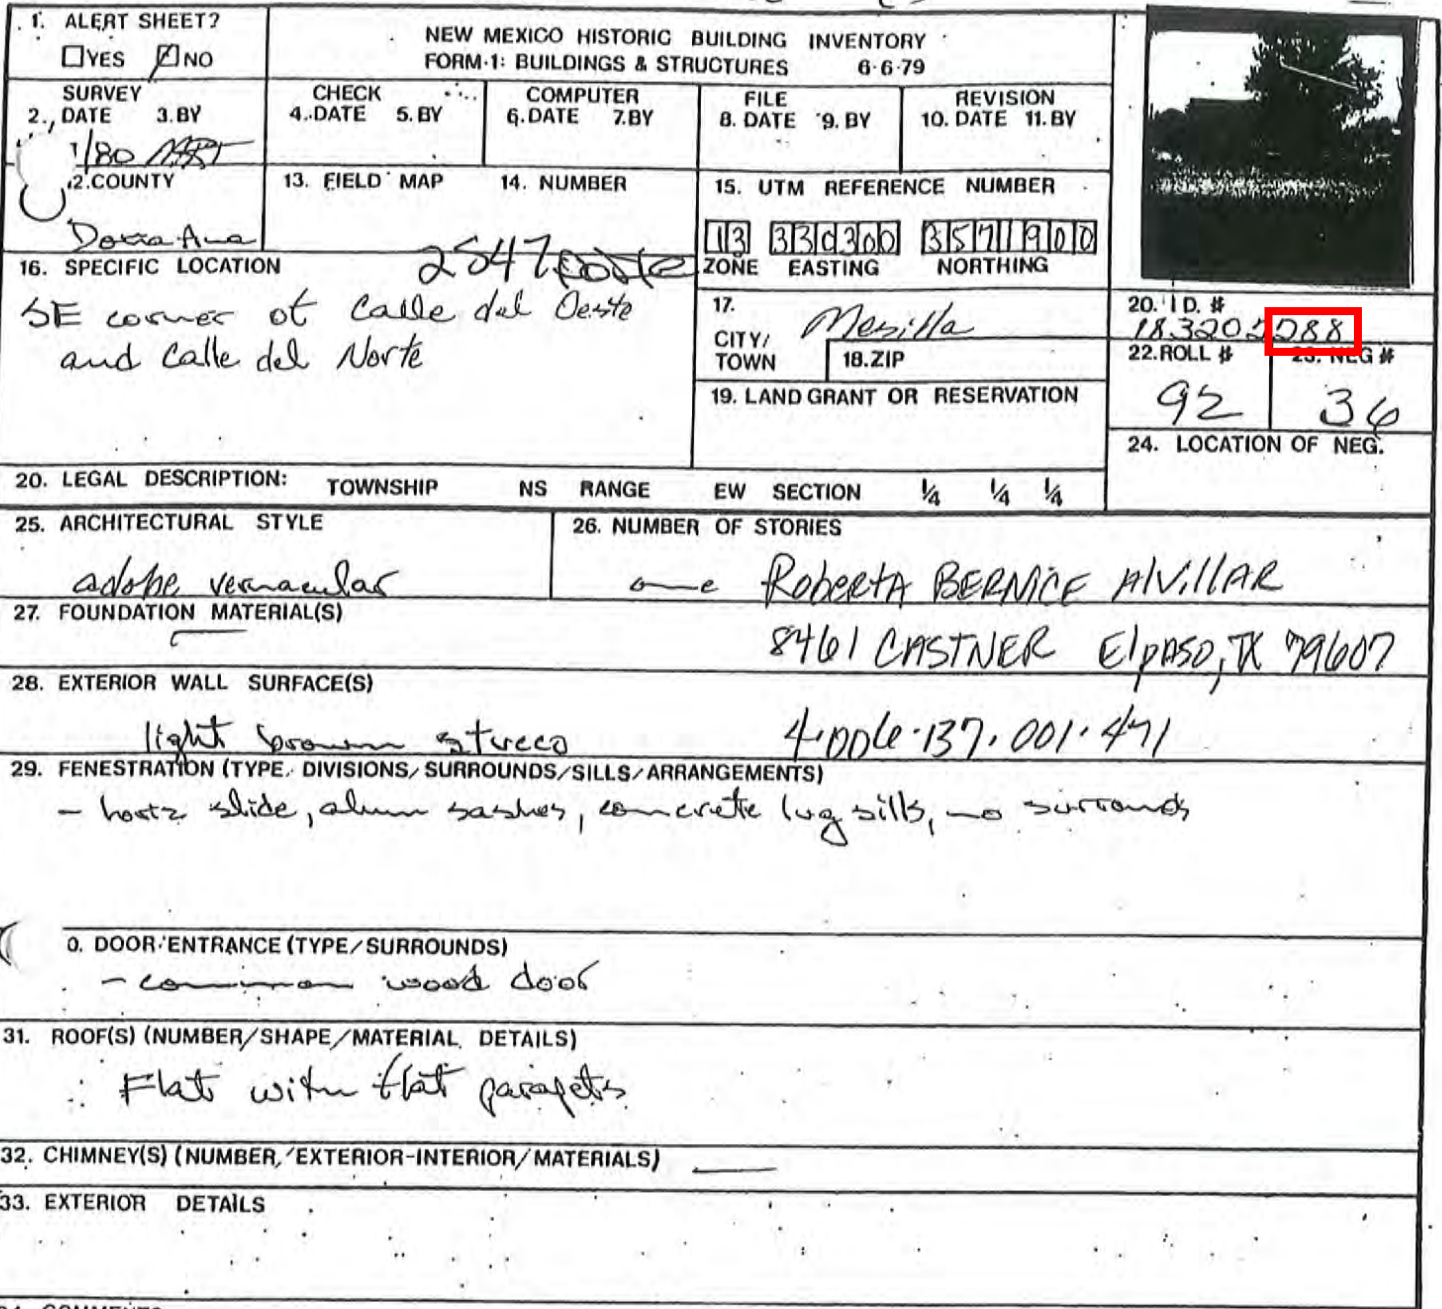 1. ALERT SHEET?
YES NO
NEW MEXICO HISTORIC BUILDING INVENTORY
FORM-1: BUILDINGS & STRUCTURES 6-6-79
SURVEY
2. DATE 3. BY
1/80
CHECK
4. DATE 5. BY
COMPUTER
6. DATE 7. BY
FILE
8. DATE 9. BY
REVISION
10. DATE 11. BY
2. COUNTY
Dona Ana
13. FIELD MAP
14. NUMBER
2547
15. UTM REFERENCE NUMBER
13 330300 3571900
ZONE EASTING NORTHING
16. SPECIFIC LOCATION
SE corner of Calle del Oeste
and Calle del Norte
17.
CITY/
TOWN
Mesilla
18. ZIP
19. LAND GRANT OR RESERVATION
20. I D. #
183202088
22. ROLL #
92
23. NEG #
36
24. LOCATION OF NEG.
20. LEGAL DESCRIPTION: TOWNSHIP NS RANGE EW SECTION 1/4 1/4 1/4
25. ARCHITECTURAL STYLE
adobe vernacular
26. NUMBER OF STORIES
one Roberta BERNICE AlvillAR
27. FOUNDATION MATERIAL(S)
8461 CASTNER Elpaso, TX 79607
28. EXTERIOR WALL SURFACE(S)
light brown stucco 4.006.137.001.471
29. FENESTRATION (TYPE/DIVISIONS/SURROUNDS/SILLS/ARRANGEMENTS)
- horiz slide, alum sashes, concrete lug sills, no surrounds
0. DOOR/ENTRANCE (TYPE/SURROUNDS)
- common wood door
31. ROOF(S) (NUMBER/SHAPE/MATERIAL DETAILS)
Flat with flat parapets
32. CHIMNEY(S) (NUMBER/EXTERIOR-INTERIOR/MATERIALS)
33. EXTERIOR DETAILS